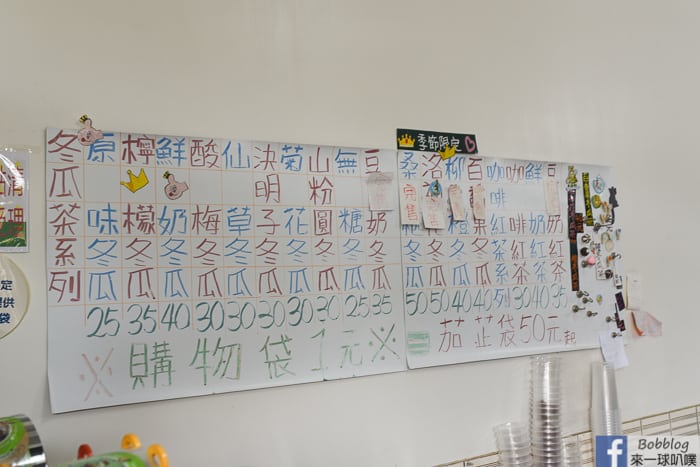 冬瓜茶系列
原味冬瓜 25
檸檬冬瓜 35
鮮奶冬瓜 40
酸梅冬瓜 30
仙草冬瓜 30
決明子冬瓜 30
菊花冬瓜 30
山粉圓冬瓜 30
無糖冬瓜 25
豆奶冬瓜 35
季節限定
桑 冬瓜 50
完售
洛 冬瓜 50
柳橙冬瓜 40
百 果冬瓜 40
咖啡紅茶系列
咖啡紅茶 30
鮮奶紅茶 40
豆奶紅茶 35
※購物袋1元※
茄芷袋50元起
Bobblog
來一球叭噗